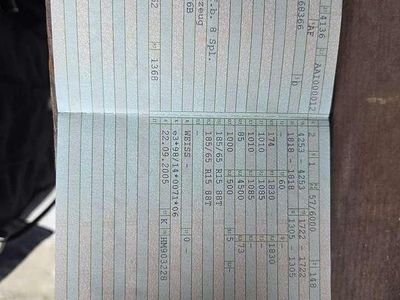 4136
AAI000012
68366
AF
D
.b. 8 Spl.
zeug
6B
1368
2 1 57/6000 148
4253 - 4253 1722 - 1722
1818 - 1818 1305 - 1305
- 60
174 1830 - 1830
1010 1085 -
1010 1085 -
85 4500 73
1000 500 5 b-
185/65 R15 88T
185/65 R15 88T
-
WEISS - 0 -
e3*98/14*0071*06
22.09.2005 K HM903228